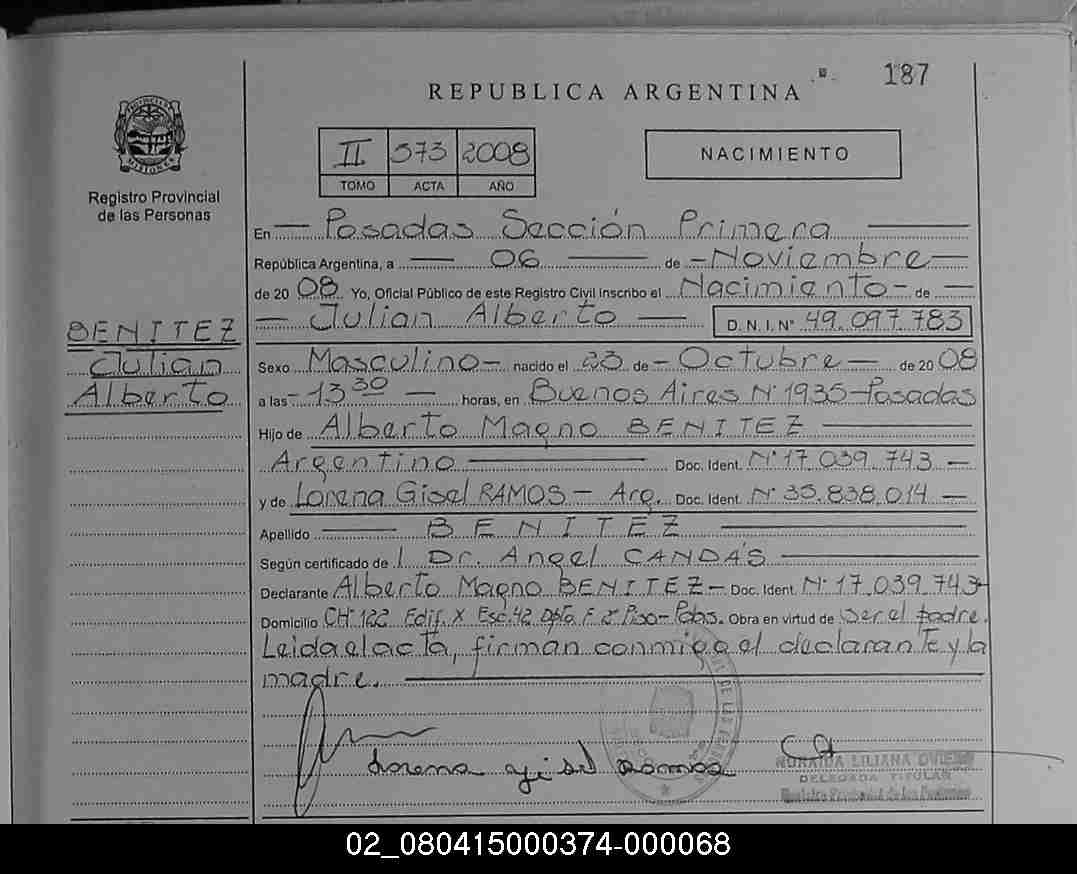 187
REPUBLICA ARGENTINA
II 373 2008
TOMO ACTA AÑO
NACIMIENTO
Registro Provincial
de las Personas
En — Posadas Sección Primera —
República Argentina, a — 06 — de — Noviembre —
de 20 08 Yo, Oficial Público de este Registro Civil Inscribo el Nacimiento - de —
— Julian Alberto — D.N.I. Nº 49.097.783
BENITEZ
Julian
Alberto
Sexo Masculino — nacido el 23 de — Octubre — de 20 08
a las - 13 30 — horas, en Buenos Aires Nº 1935 - Posadas
Hijo de Alberto Magno BENITEZ —
Argentino — Doc. Ident. Nº 17.039.743 —
y de Lorena Gisel RAMOS — Arg. Doc. Ident. Nº 35.838.014 —
Apellido — BENITEZ —
Según certificado de Dr. Angel CANDAS —
Declarante Alberto Magno BENITEZ — Doc. Ident. Nº 17.039.743
Domicilio CHº 122 Edif. X Esc. 42 Dpto. F 2º Piso - Pdas. Obra en virtud de Ser el padre.
Leida el acta, firman conmigo el declarante y la
madre. —
Lorena Gisel Ramos
LILIANA
DELEGADA TITULAR
Registro Provincial de las Personas
02_080415000374-000068